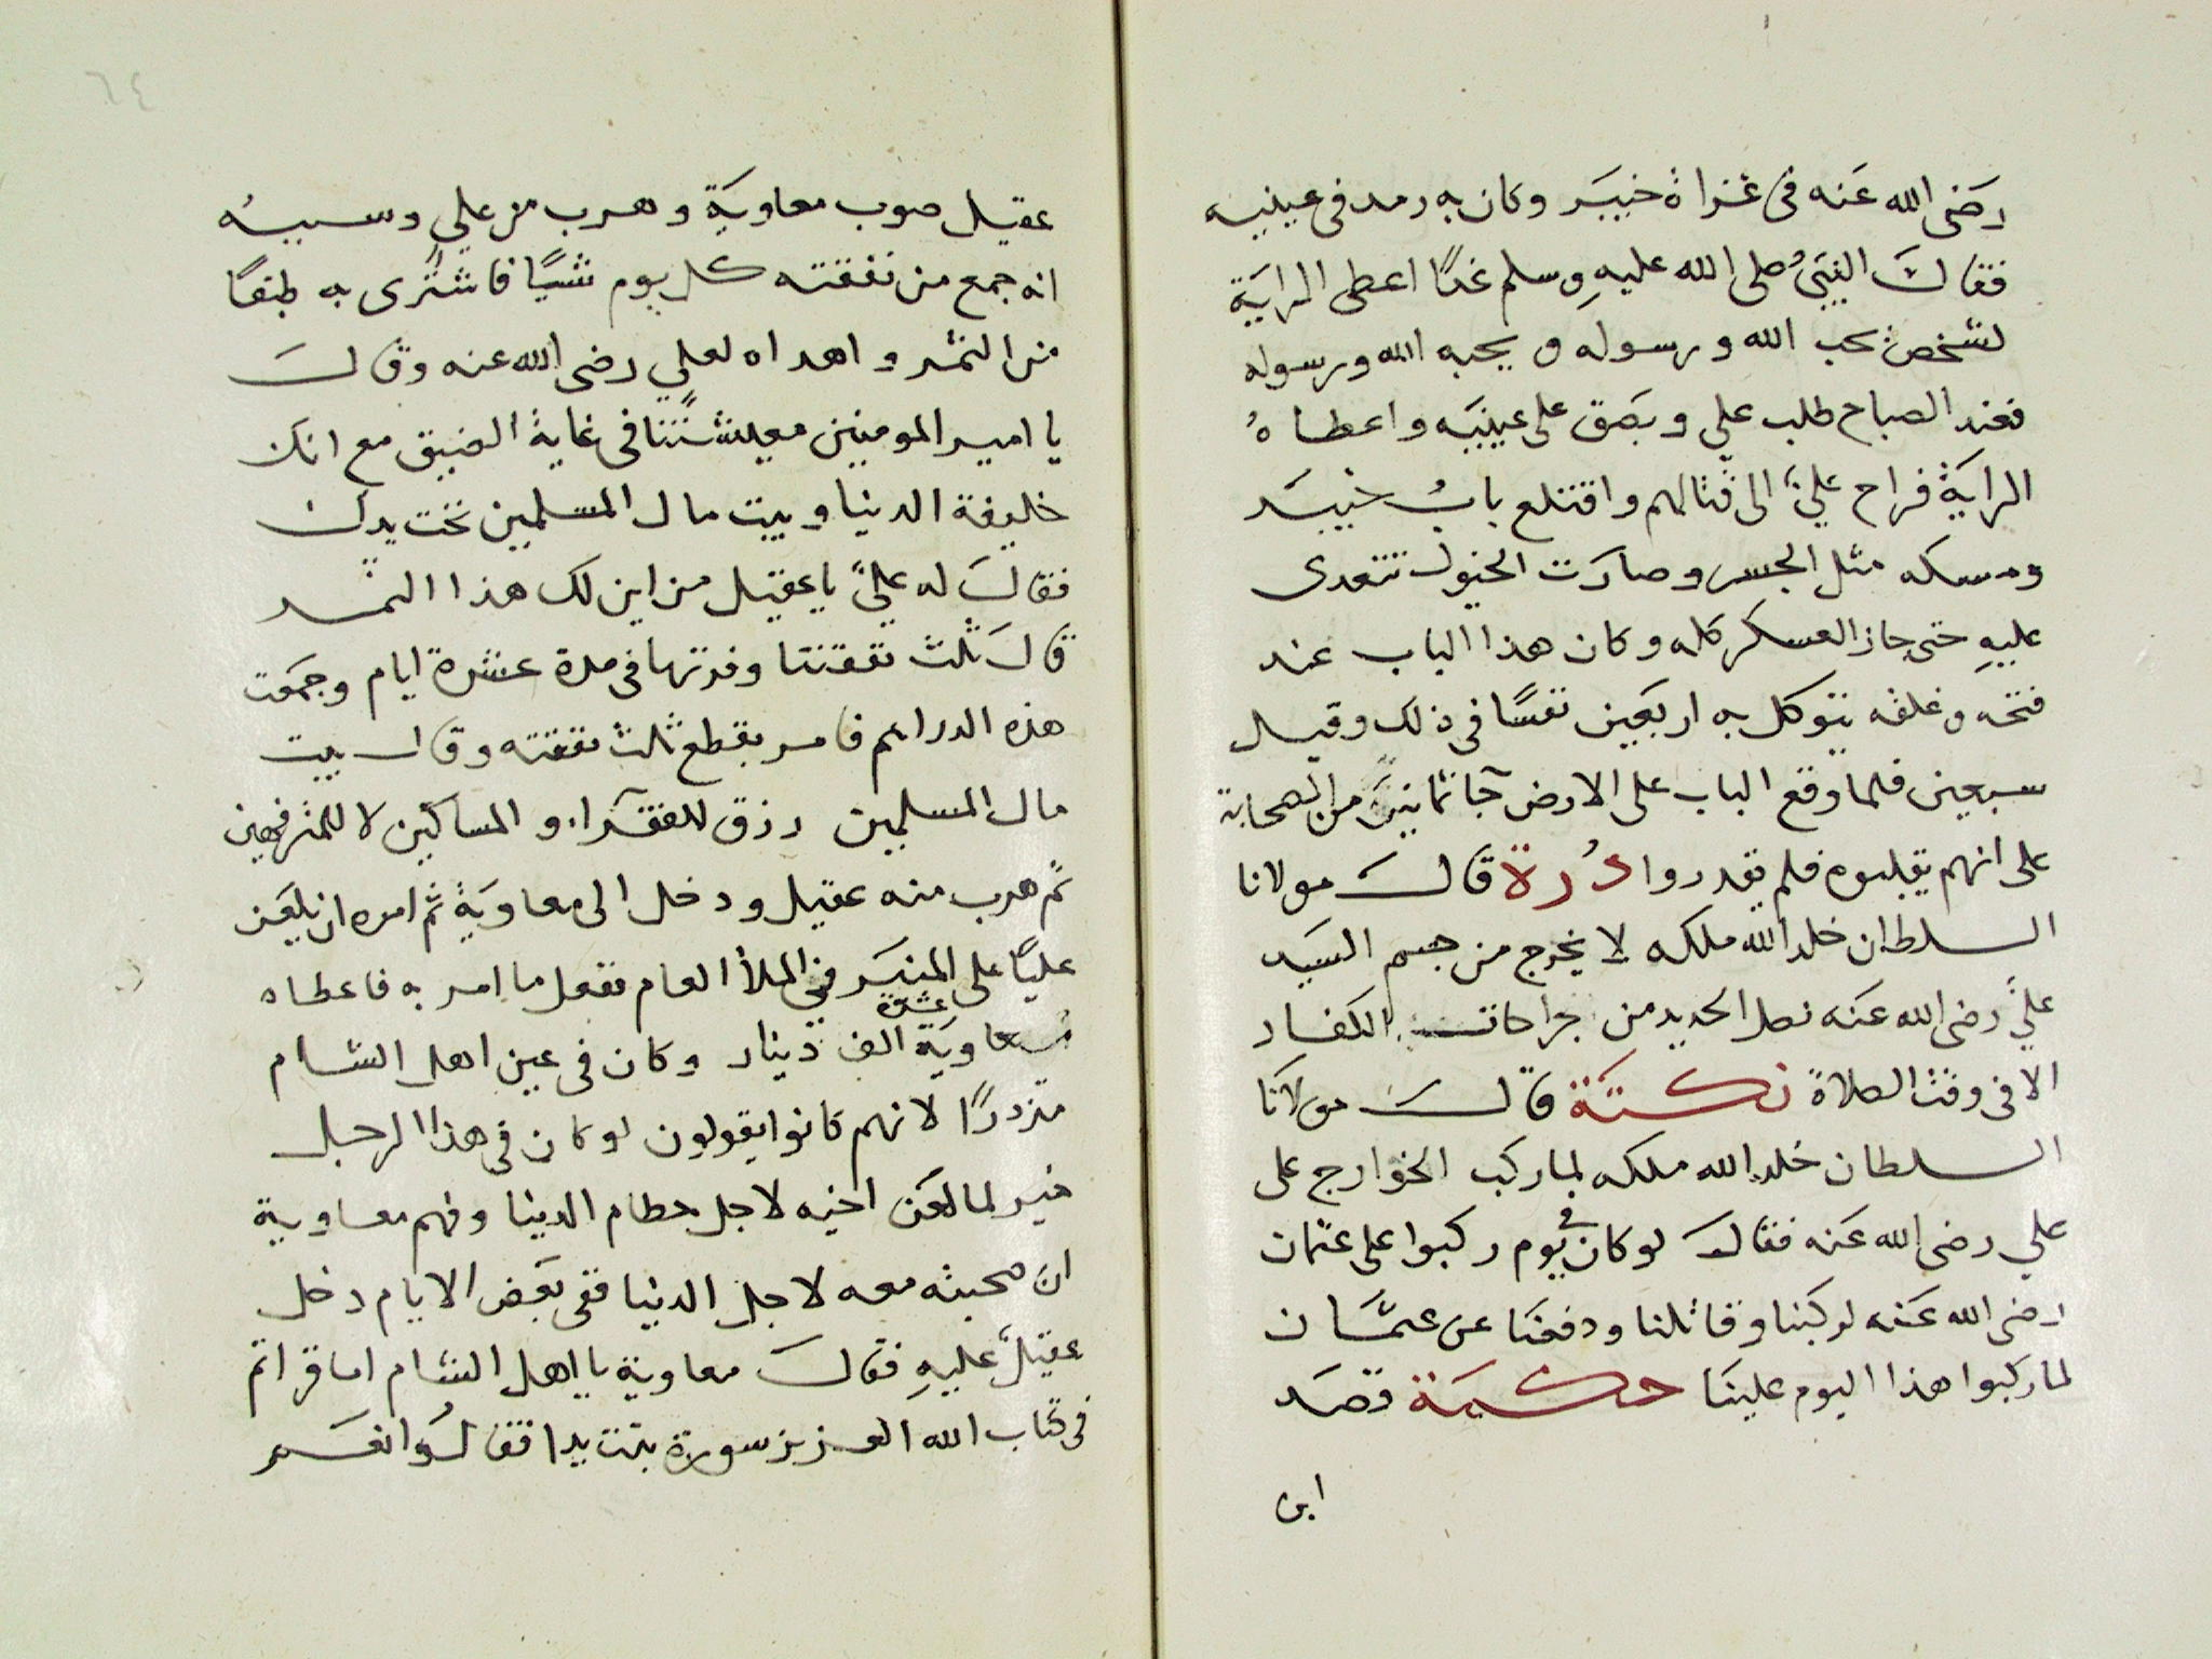 رضى الله عنه فى غزاة خيبر وكان به رمد فى عينيه
فقال النبى صلى الله عليه وسلم غدًا اعطى الراية
لشخص يحب الله ورسوله و يحبه الله ورسوله
فعند الصباح طلب علي وبصق على عينيه واعطاهُ
الراية فراح علىّ الى قتالهم واقتلع بابُ خيبر
ومسكه مثل الجسر وصارت الخيول تتعدى
عليهِ حتى جاز العسكر كله وكان هذا الباب عند
فتحه وغلقه يتوكل به اربعين نفسًا فى ذلك وقيل
سبعين فلما وقع الباب على الارض جآ ثمانين من الصحابة
على انهم يقلبوه فلم يقدروا دُرة قال مولانا
السلطان خلد الله ملكه لا يخرج من جسم السيد
عليّ رضى الله عنه نصل الحديد من جراحات الكفار
الا فى وقت الصلاة نكتة قال مولانا
السلطان خلد الله ملكه لما ركب الخوارج على
علي رضى الله عنه فقال لو كان فى يوم ركبوا على عثمان
رضى الله عنه لركبنا وقاتلنا ودفعنا عن عثمان
لما ركبوا هذا اليوم علينا حكمة قصد
ابن
٦٤
عقيل صوب معاوية وهرب من علي وسببه
انه جمع من نفقته كل يوم شيًا فاشترى به طبقًا
من التمر واهداه لعلي رضى الله عنه وقال
يا امير المومنين معيشتنا فى غاية الضيق مع انك
خليفة الدنيا وبيت مال المسلمين تحت يدك
فقال له علىّ يا عقيل من اين لك هذا التمر
قال ثلث نفقتنا وفرتها فى مدة عشرة ايام وجمعت
هذه الدراهم فامر بقطع ثلث نفقته وقال بيت
مال المسلمين رزق للفقرآء و المساكين لا للمترفهين
ثم هرب منه عقيل ودخل الى معاوية ثم امره ان يلعن
عليًا على المنبر فى الملأ العام ففعل ما امر به فاعطاه
معاوية عشرة الف دينار وكان فى عين اهل الشام
متزدرًا لانهم كانوا يقولون لو كان فى هذا الرجل
خير لما لعن اخيه لاجل حطام الدينا وفهم معاوية
ان محبته معه لاجل الدنيا ففى بعض الايام دخل
عقيلٌ عليهِ فقال معاوية يا اهل الشام اما قراتم
فى كتاب الله العزيز سورة تبت يدا فقالُوا نعم